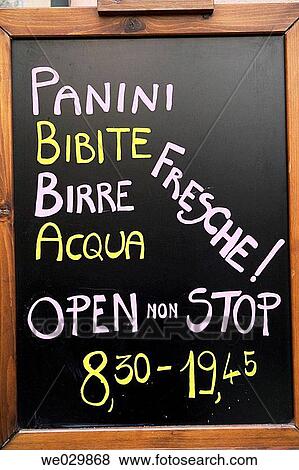 PANINI
BIBITE
BIRRE
ACQUA
FRESCHE!
OPEN NON STOP
8,30 - 19,45
FOTOSEARCH
we029868 www.fotosearch.com